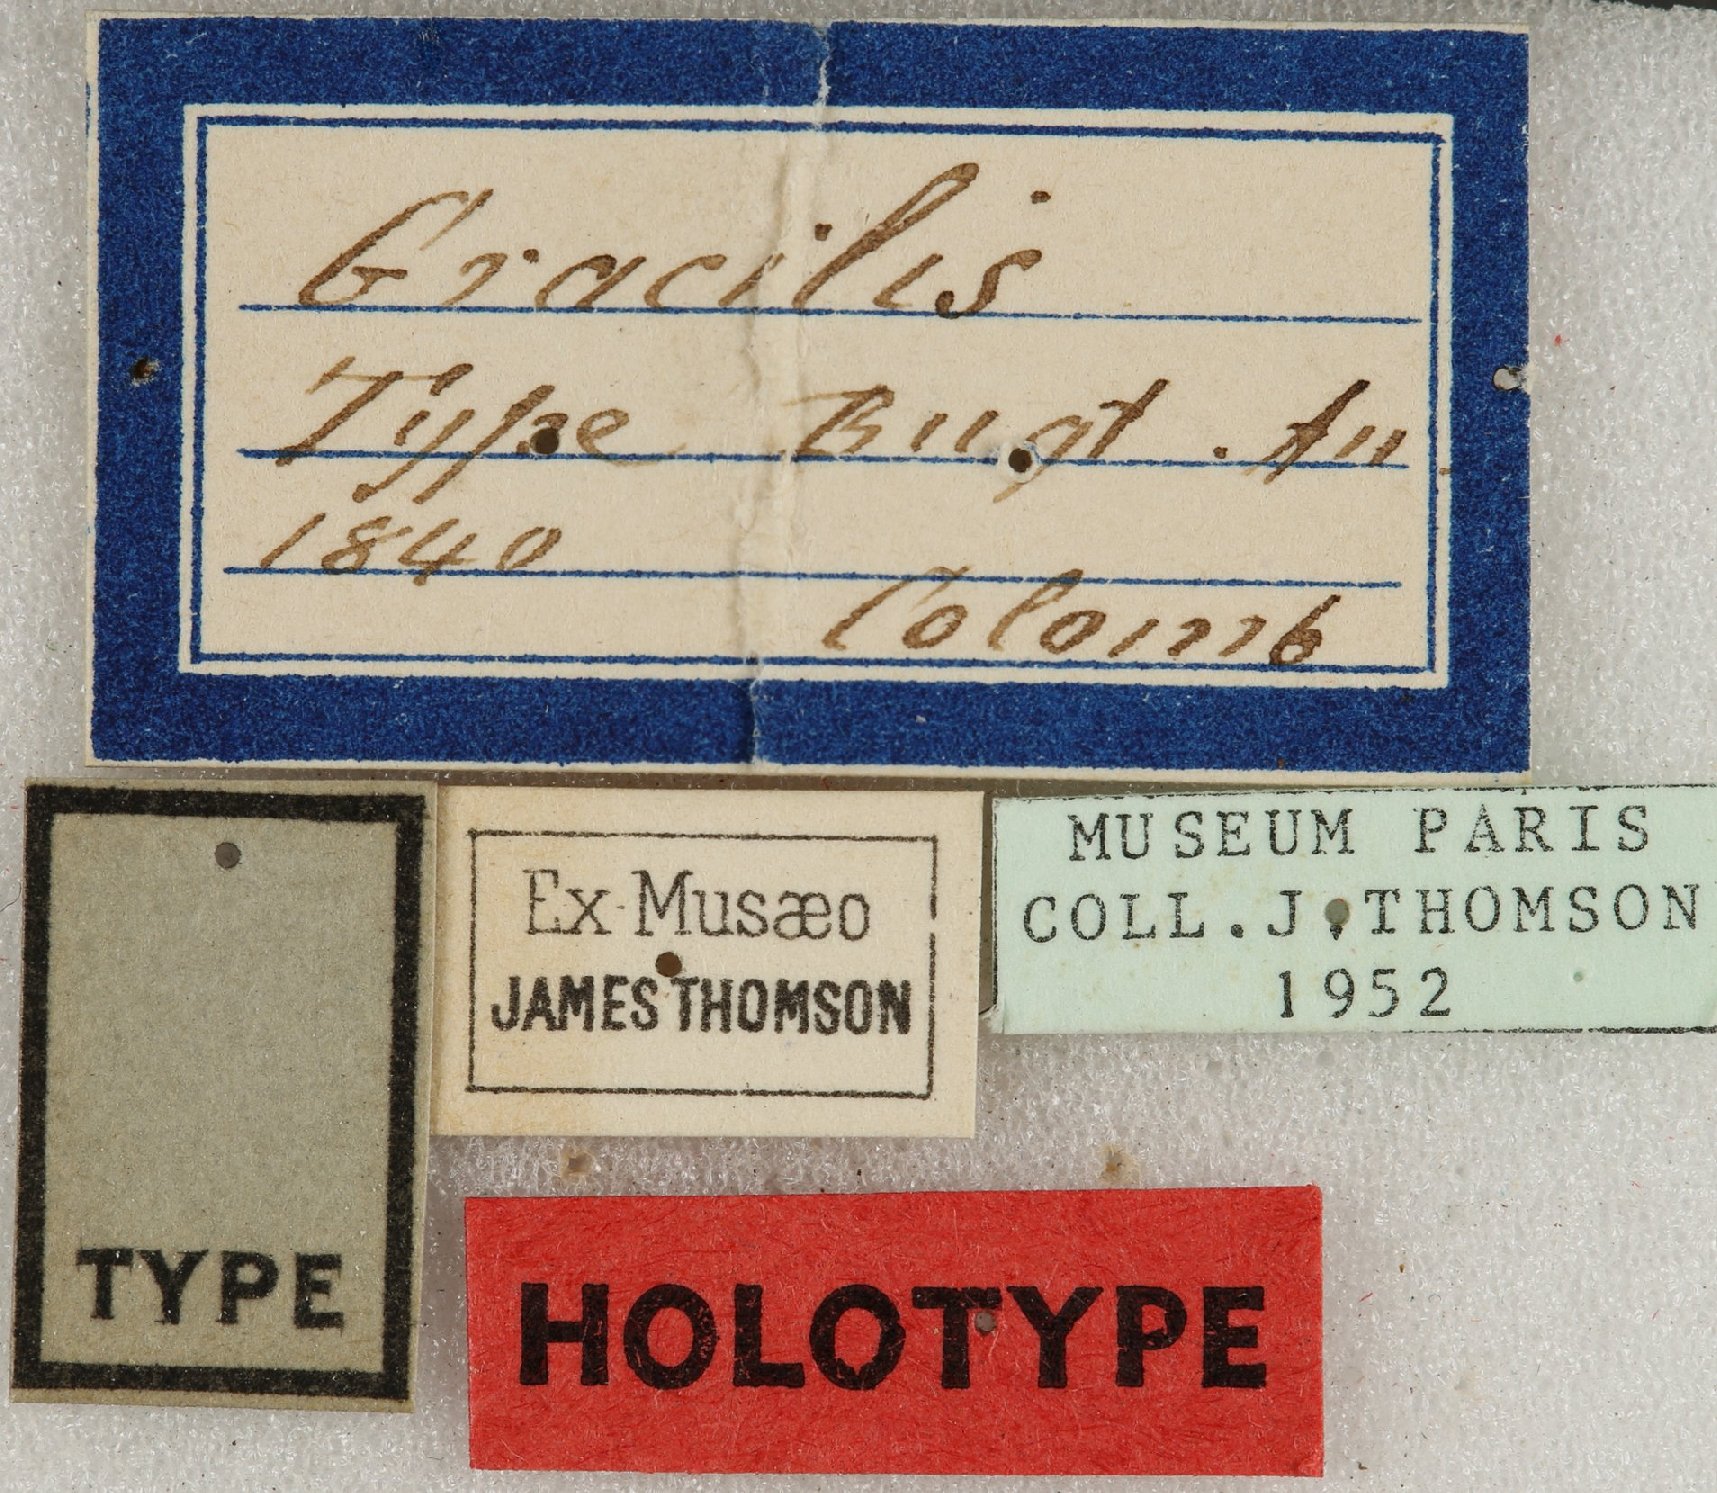 Gracilis
Type Buqt. An
1840
Colomb
TYPE
Ex Musæo
JAMES THOMSON
MUSEUM PARIS
COLL. J. THOMSON
1952
HOLOTYPE